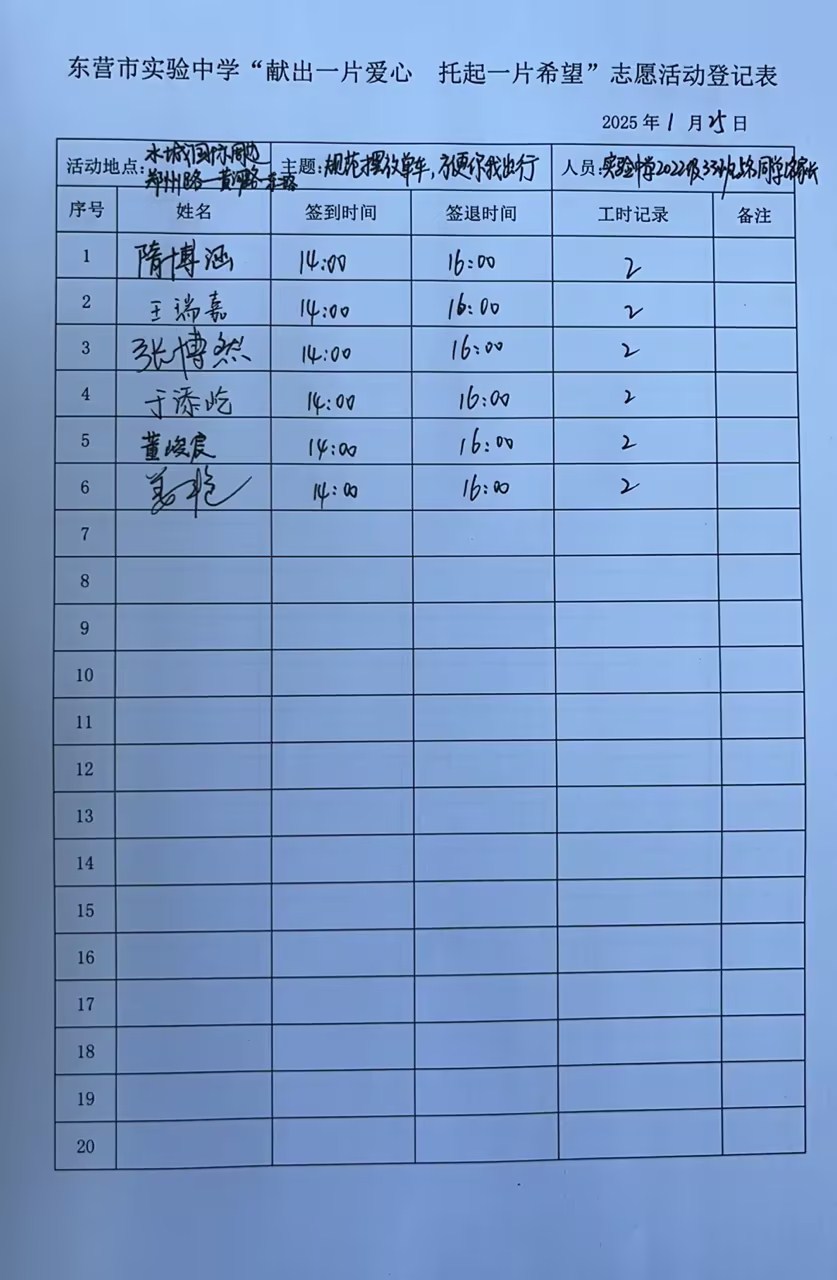 东营市实验中学“献出一片爱心 托起一片希望”志愿活动登记表
2025 年 1 月 25 日
活动地点: 水城国际周边 郑州路—黄河路—东 主题: 规范摆放单车,方便你我出行 人员: 实验中学2022级33班 同学 家长
序号 姓名 签到时间 签退时间 工时记录 备注
1 隋博涵 14:00 16:00 2
2 王瑞嘉 14:00 16:00 2
3 张博然 14:00 16:00 2
4 于添屹 14:00 16:00 2
5 董峻宸 14:00 16:00 2
6 姜 14:00 16:00 2
7
8
9
10
11
12
13
14
15
16
17
18
19
20